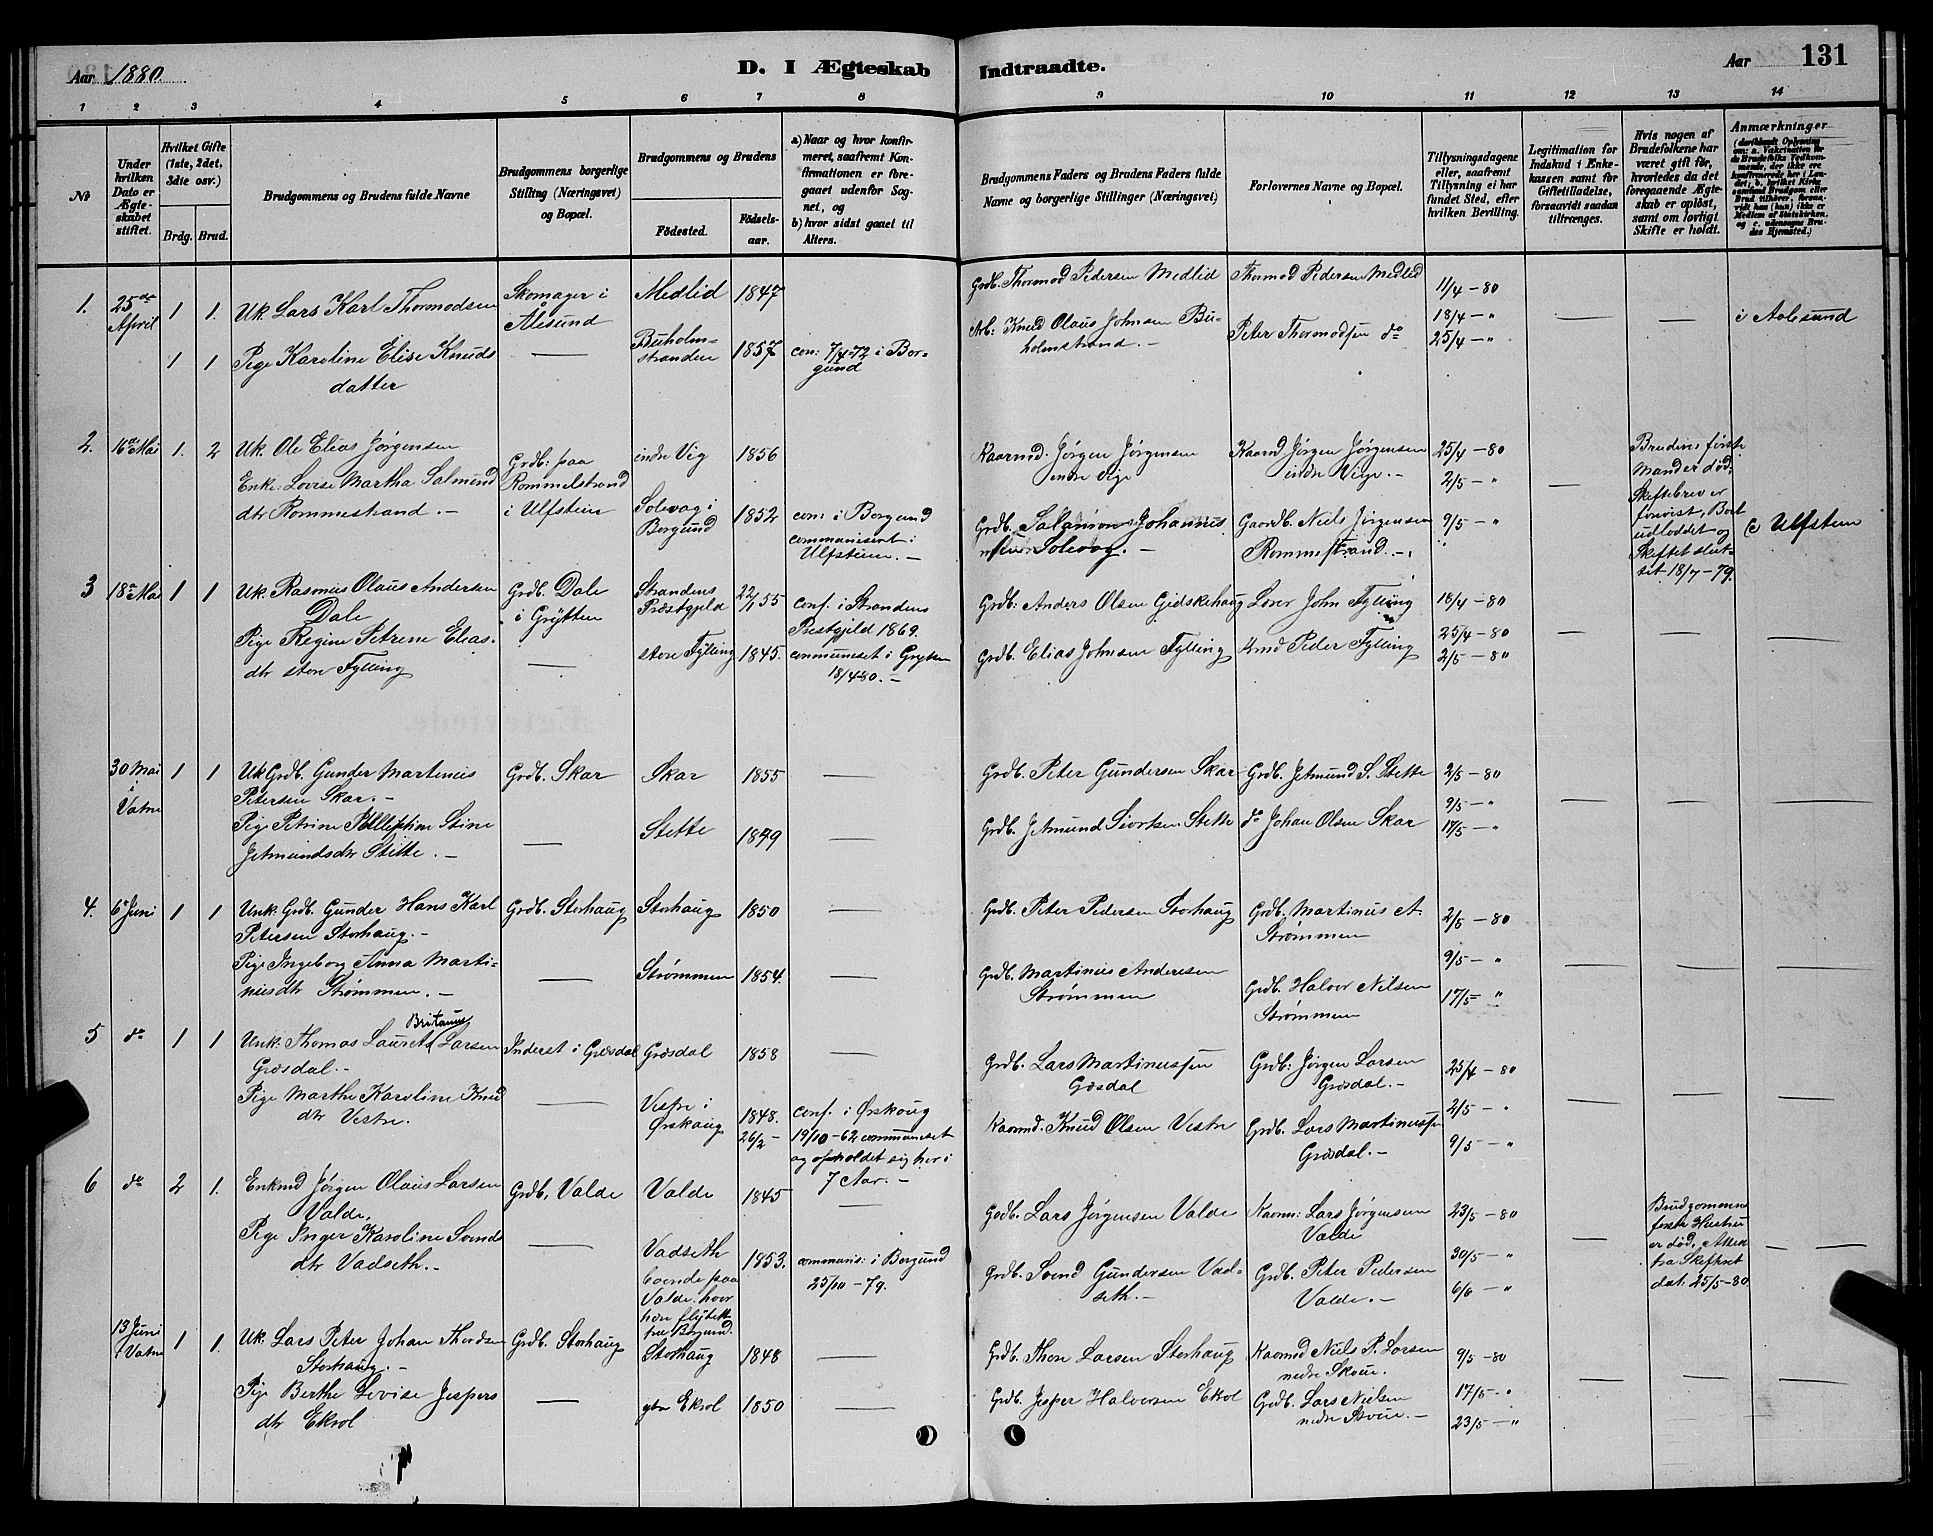 Aar 1880.
D. I Ægteskab Indtraadte.
Aar 131
1 2 3 4 5 6 7 8 9 10 11 12 13 14
No
Under hvilken Dato er Ægteskabet stiftet.
Hvilket Gifte (1ste, 2det, 3die osv.)
Brdg. Brud.
Brudgommens og Brudens fulde Navne
Brudgommens borgerlige Stilling (Næringsvei) og Bopæl.
Brudgommens og Brudens
Födested. Födselsaar.
a) Naar og hvor konfirmeret, saafremt Konfirmationen er foregaaet udenfor Sognet, og
b) hvor sidst gaaet til Alters.
Brudgommens Faders og Brudens Faders fulde Navne og borgerlige Stillinger (Næringsvei)
Forlovernes Navne og Bopæl.
Tillysningsdagene eller, saafremt Tillysning ei har fundet Sted, efter hvilken Bevilling.
Legitimation for Indskud i Ænkekassen samt for Giftetilladelse, forsaavidt saadan tiltrænges.
Hvis nogen af Brudefolkene har været gift før, hvorledes da det foregaaende Ægteskab er opløst, samt om lovligt Skifte er holdt.
Anmærkninger
1. 25de April 1 1.
Uk. Lars Karl Thormodsen
Skomager i Ålesund
Medlid 1847
Grdb. Thormod Pedersen Medlid
Thormod Pedersen Medlid
11/4 - 80
18/4 - "
25/4 - "
i Aalesund
1 1
Pige Karoline Elise Knuds
datter
Buholmstranden 1857
con: 7/4-72 i Borgund
Arb: Knud Olaus Johnsen Buholmstrand. -
Peter Thormodsen do
2. 16de Mai 1. 2
Uk. Ole Elias Jørgensen
Enke Lovise Martha Salmond
dtr Rommestrand. -
Grdb: paa Rommelstrand i Ulfstein
indre Vig 1856
Solevag i Borgund 1852
con: i Borgund
communisert i Ulfstein. -
Kaarmd. Jørgen Jørgensen
indre Vige
Grdb. Salamon Johannessen Solevog. -
Kaarmd Jørgen Jørgensen
indre Vige. -
Gaardb. Niels Jørgensen
Rommestrand. -
25/4 - 80
2/5 - "
9/5 - "
Brudens første
Mand er død.
Skiftebrev er
forevist, Boet
udloddet og
Skiftet slut-
tet 18/7 - 79.
c) Ulfsten
3 18de Mai 1 1
Uk. Rasmus Olaus Andersen
Dale
Pige Regine Petrene Elias-
dtr store Fylling
Grdb. Dale
i Grytten
Strandens Præstgjeld 22/1 55
store Fylling 1845.
conf. i Strandens
Prestgjeld 1869.
communiset i Grytten
18/4 80. -
Grdb: Anders Olsen Gjdskehaug
Grdb. Elias Johnsen Fylling
Lærer John Fylling
Kmd Peder Fylling
18/4 - 80
25/4 - 80
2/5 - 80
30 Mai i Vatne 1 1
Uk Grdb. Gunder Martinus
Petersen Skar. -
Pige Petrine Stine
Jetmundsdtr Stette. -
Grdb. Skar
Skar 1855
Stette 1849
Grdb. Peter Gundersen Skar
Grdb. Jetmund Sivertsen Stette
Grdb. Jetmund S. Stette
do Johan Olsen Skar
2/5 - 80
9/5 - "
17/5 - "
4. 6te Juni 1 1
Unk. Grdb. Gunder Hans Karl
Petersen Storhaug. -
Pige Ingeborg Anna Marti-
niusdtr Strømmen. -
Grdb. Storhaug
Storhaug 1850
Strømmen 1854.
Grdb. Peter Pedersen Storhaug
Grdb. Martinus Andersen
Strømmen
Grdb. Martinus A.
Strømmen
Grdb. Halvor Nilsen
Strømmen
2/5 - 80
9/5 - "
17/5 - "
5 do 1 1
Britanus
Unk. Thomas Laurits Larsen
Græsdal. -
Pige Marthe Karoline Knud
dtr Vestre.
Inderst i Græsdal
Græsdal 1858
Vestre i Ørskoug 1848. 26/2 -
conf. i Ørskoug
19/10 - 62 communiset
og opholdet sig her i
7 Aar. -
Grdb. Lars Martinussen
Græsdal
Kaarmd. Knud Olsen Vestre
Grdb: Jørgen Larsen
Græsdal. -
Grdb. Lars Martinussen
Græsdal. -
25/4 - 80
2/5 - "
9/5 - "
6 do 2 1.
Enkmd Jørgen Olaus Larsen
Valde.
Pige Inger Karoline Svends
dtr Vadseth. -
Grdb. Valde
Valde 1845
Vadseth 1853.
boende paa
Valde, hvor
hun flyttede
fra Borgund.
communis: i Borgund
25/10 - 79.
Grdb. Lars Jørgensen Valde
Grdb. Svend Gundersen Vad-
seth. -
Kaarm: Lars Jørgensen
Valde
Grdb. Peter Pedersen
Valde. -
23/5 - 80
30/5 - "
6/6 - "
Brudgommens
første Hustru
er død. Attest
fra Skifteret
dat: 25/5 - 80
13 Juni i Vatne 1 1.
Uk. Lars Peter Johan Thordsen
Storhaug. -
Pige Berthe Lovise Jespers
dtr Ekrol
Grdb. Storhaug
Storhaug 1848
ytre Ekrol 1850
Grdb. Thore Larsen Storhaug
Grdb. Jesper Halvorsen Ekrol
Kaarmd Niels P. Larsen
nedre Skoue.
Grdb. Lars Nielsen
nedre Skoue. -
9/5 - 80
17/5 - "
23/5 - "